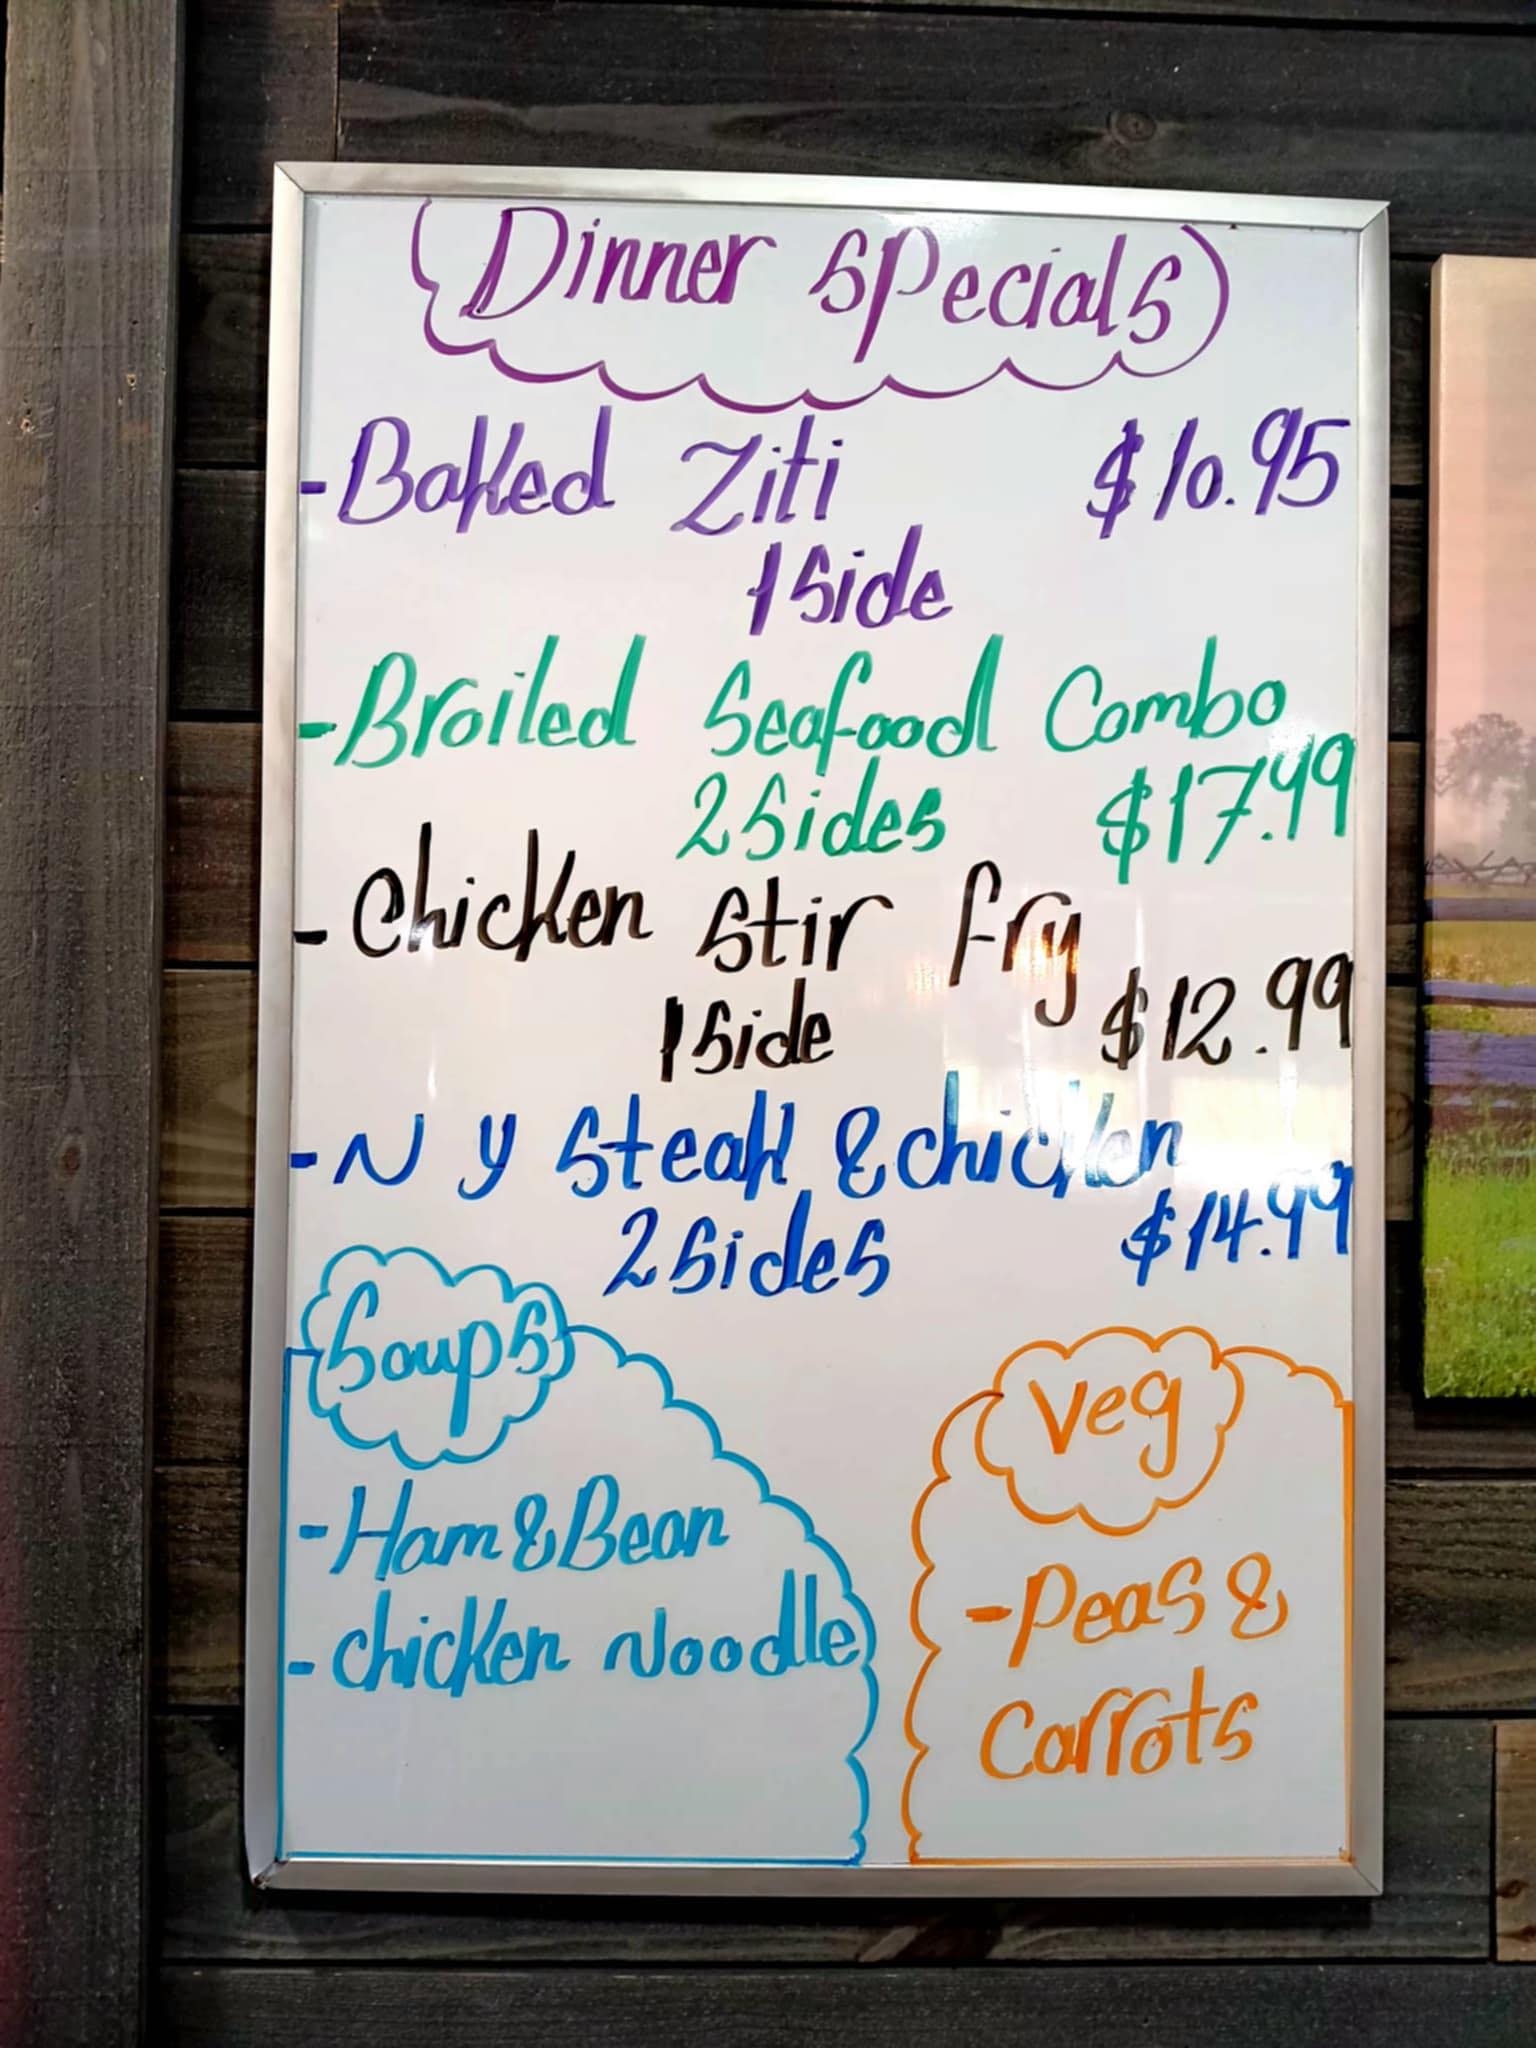 Dinner Specials
- Baked Ziti $10.95
1 Side
- Broiled Seafood Combo
2 Sides $17.99
- Chicken Stir fry
1 Side $12.99
- N Y Steak & chicken
2 Sides $14.99
Soups
- Ham & Bean
- chicken Noodle
Veg
- Peas &
Carrots